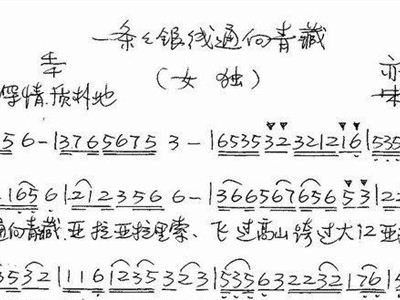 一条々银线通向青藏
(女独)
深情.质朴地
5 6 - | 3 7 6 5 6 7 5 3 - | 6 5 3 5 3 2 3 2 1 2 1 6 | 5 3 5
1 6 5 6 | 2 1 2 3 5 6 6 - | 3 6 6 5 6 7 6 5 6 5 3 | 2 2
通向青藏.亚拉亚拉里索、飞过高山跨过大江亚
3 5 3 2 | 1 1 6 | 1 2 3 5 3 2 3 | 5 3 5 6 3 2 2 3 2 1 7 6 | 5